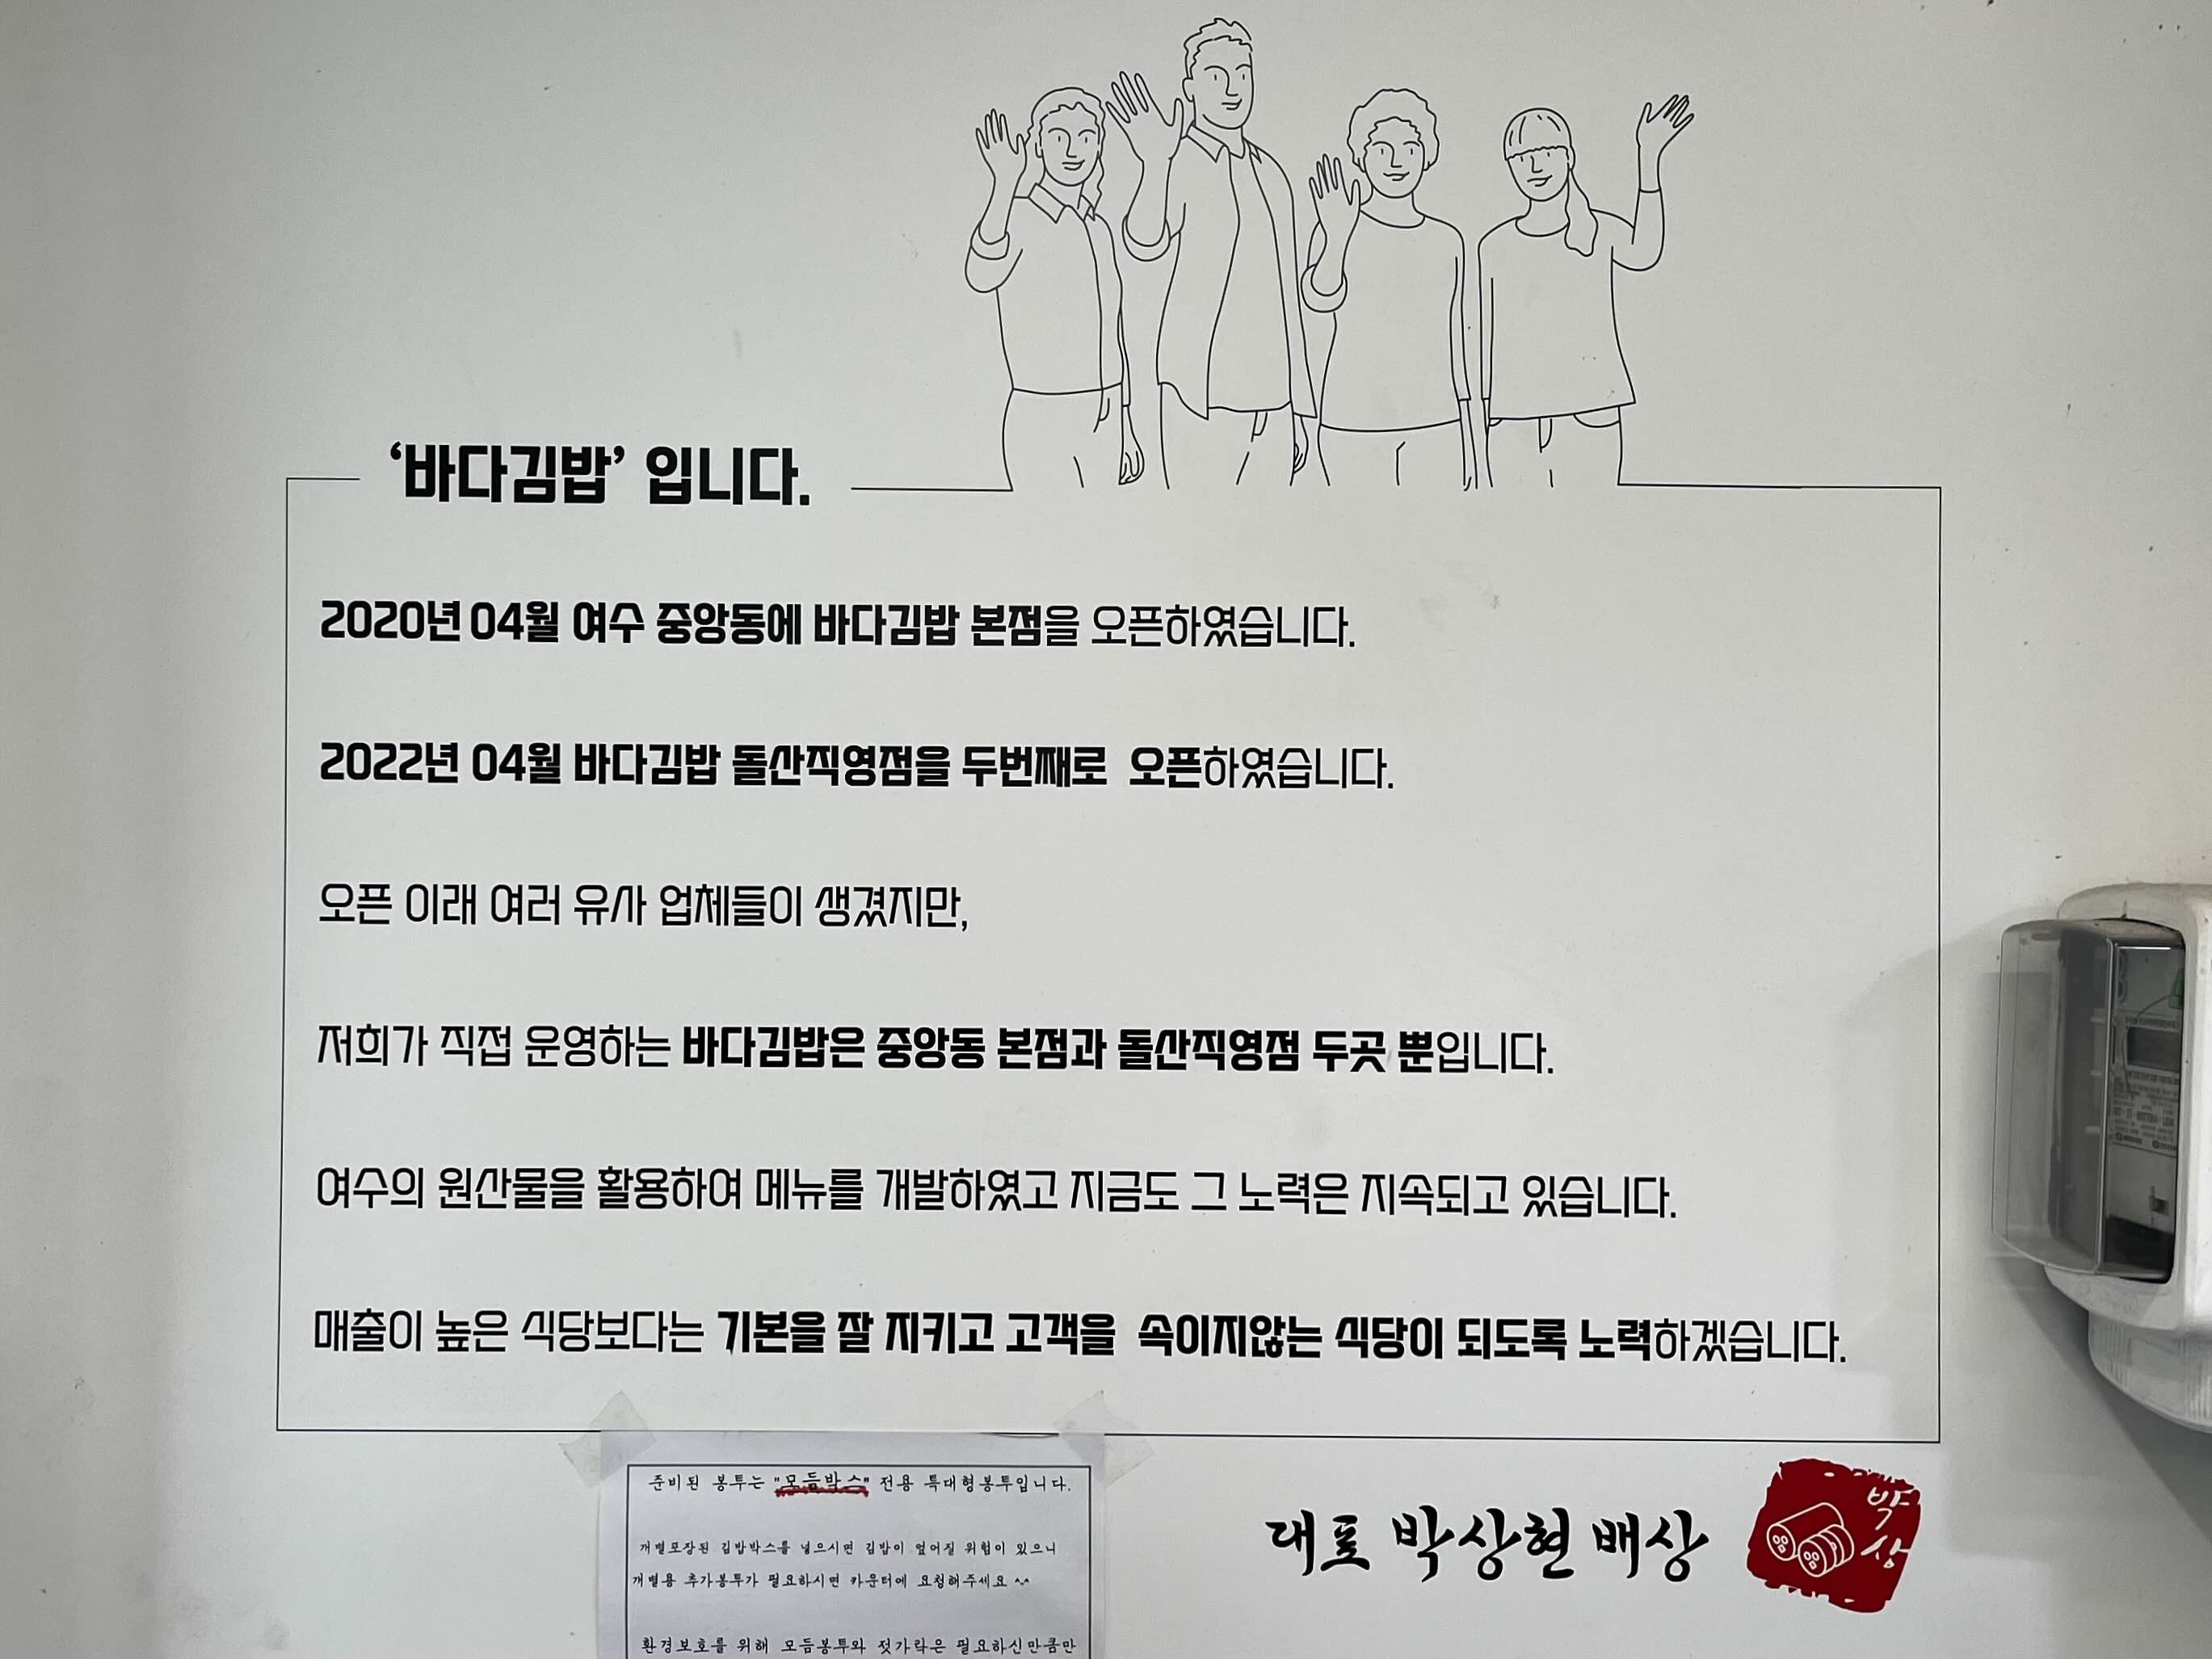 ‘바다김밥’ 입니다.
2020년 04월 여수 중앙동에 바다김밥 본점을 오픈하였습니다.
2022년 04월 바다김밥 돌산직영점을 두번째로 오픈하였습니다.
오픈 이래 여러 유사 업체들이 생겼지만,
저희가 직접 운영하는 바다김밥은 중앙동 본점과 돌산직영점 두곳 뿐입니다.
여수의 원산물을 활용하여 메뉴를 개발하였고 지금도 그 노력은 지속되고 있습니다.
매출이 높은 식당보다는 기본을 잘 지키고 고객을 속이지않는 식당이 되도록 노력하겠습니다.
대표 박상현 배상
박상
준비된 봉투는 "모듬박스" 전용 특대형봉투입니다.
개별포장된 김밥박스를 넣으시면 김밥이 엎어질 위험이 있으니
개별용 추가봉투가 필요하시면 카운터에 요청해주세요 ^^
환경보호를 위해 모듬봉투와 젓가락은 필요하신만큼만